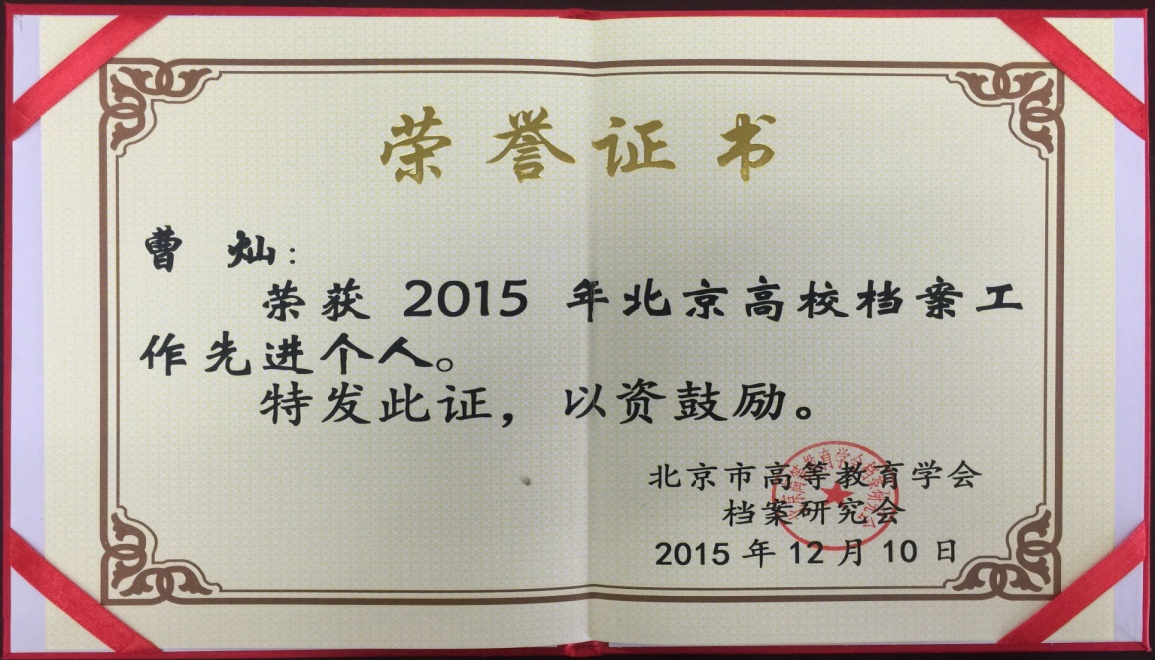 荣誉证书
曹 灿：
荣获 2015 年北京高校档案工
作先进个人。
特发此证，以资鼓励。
北京市高等教育学会
档案研究会
2015 年 12 月 10 日